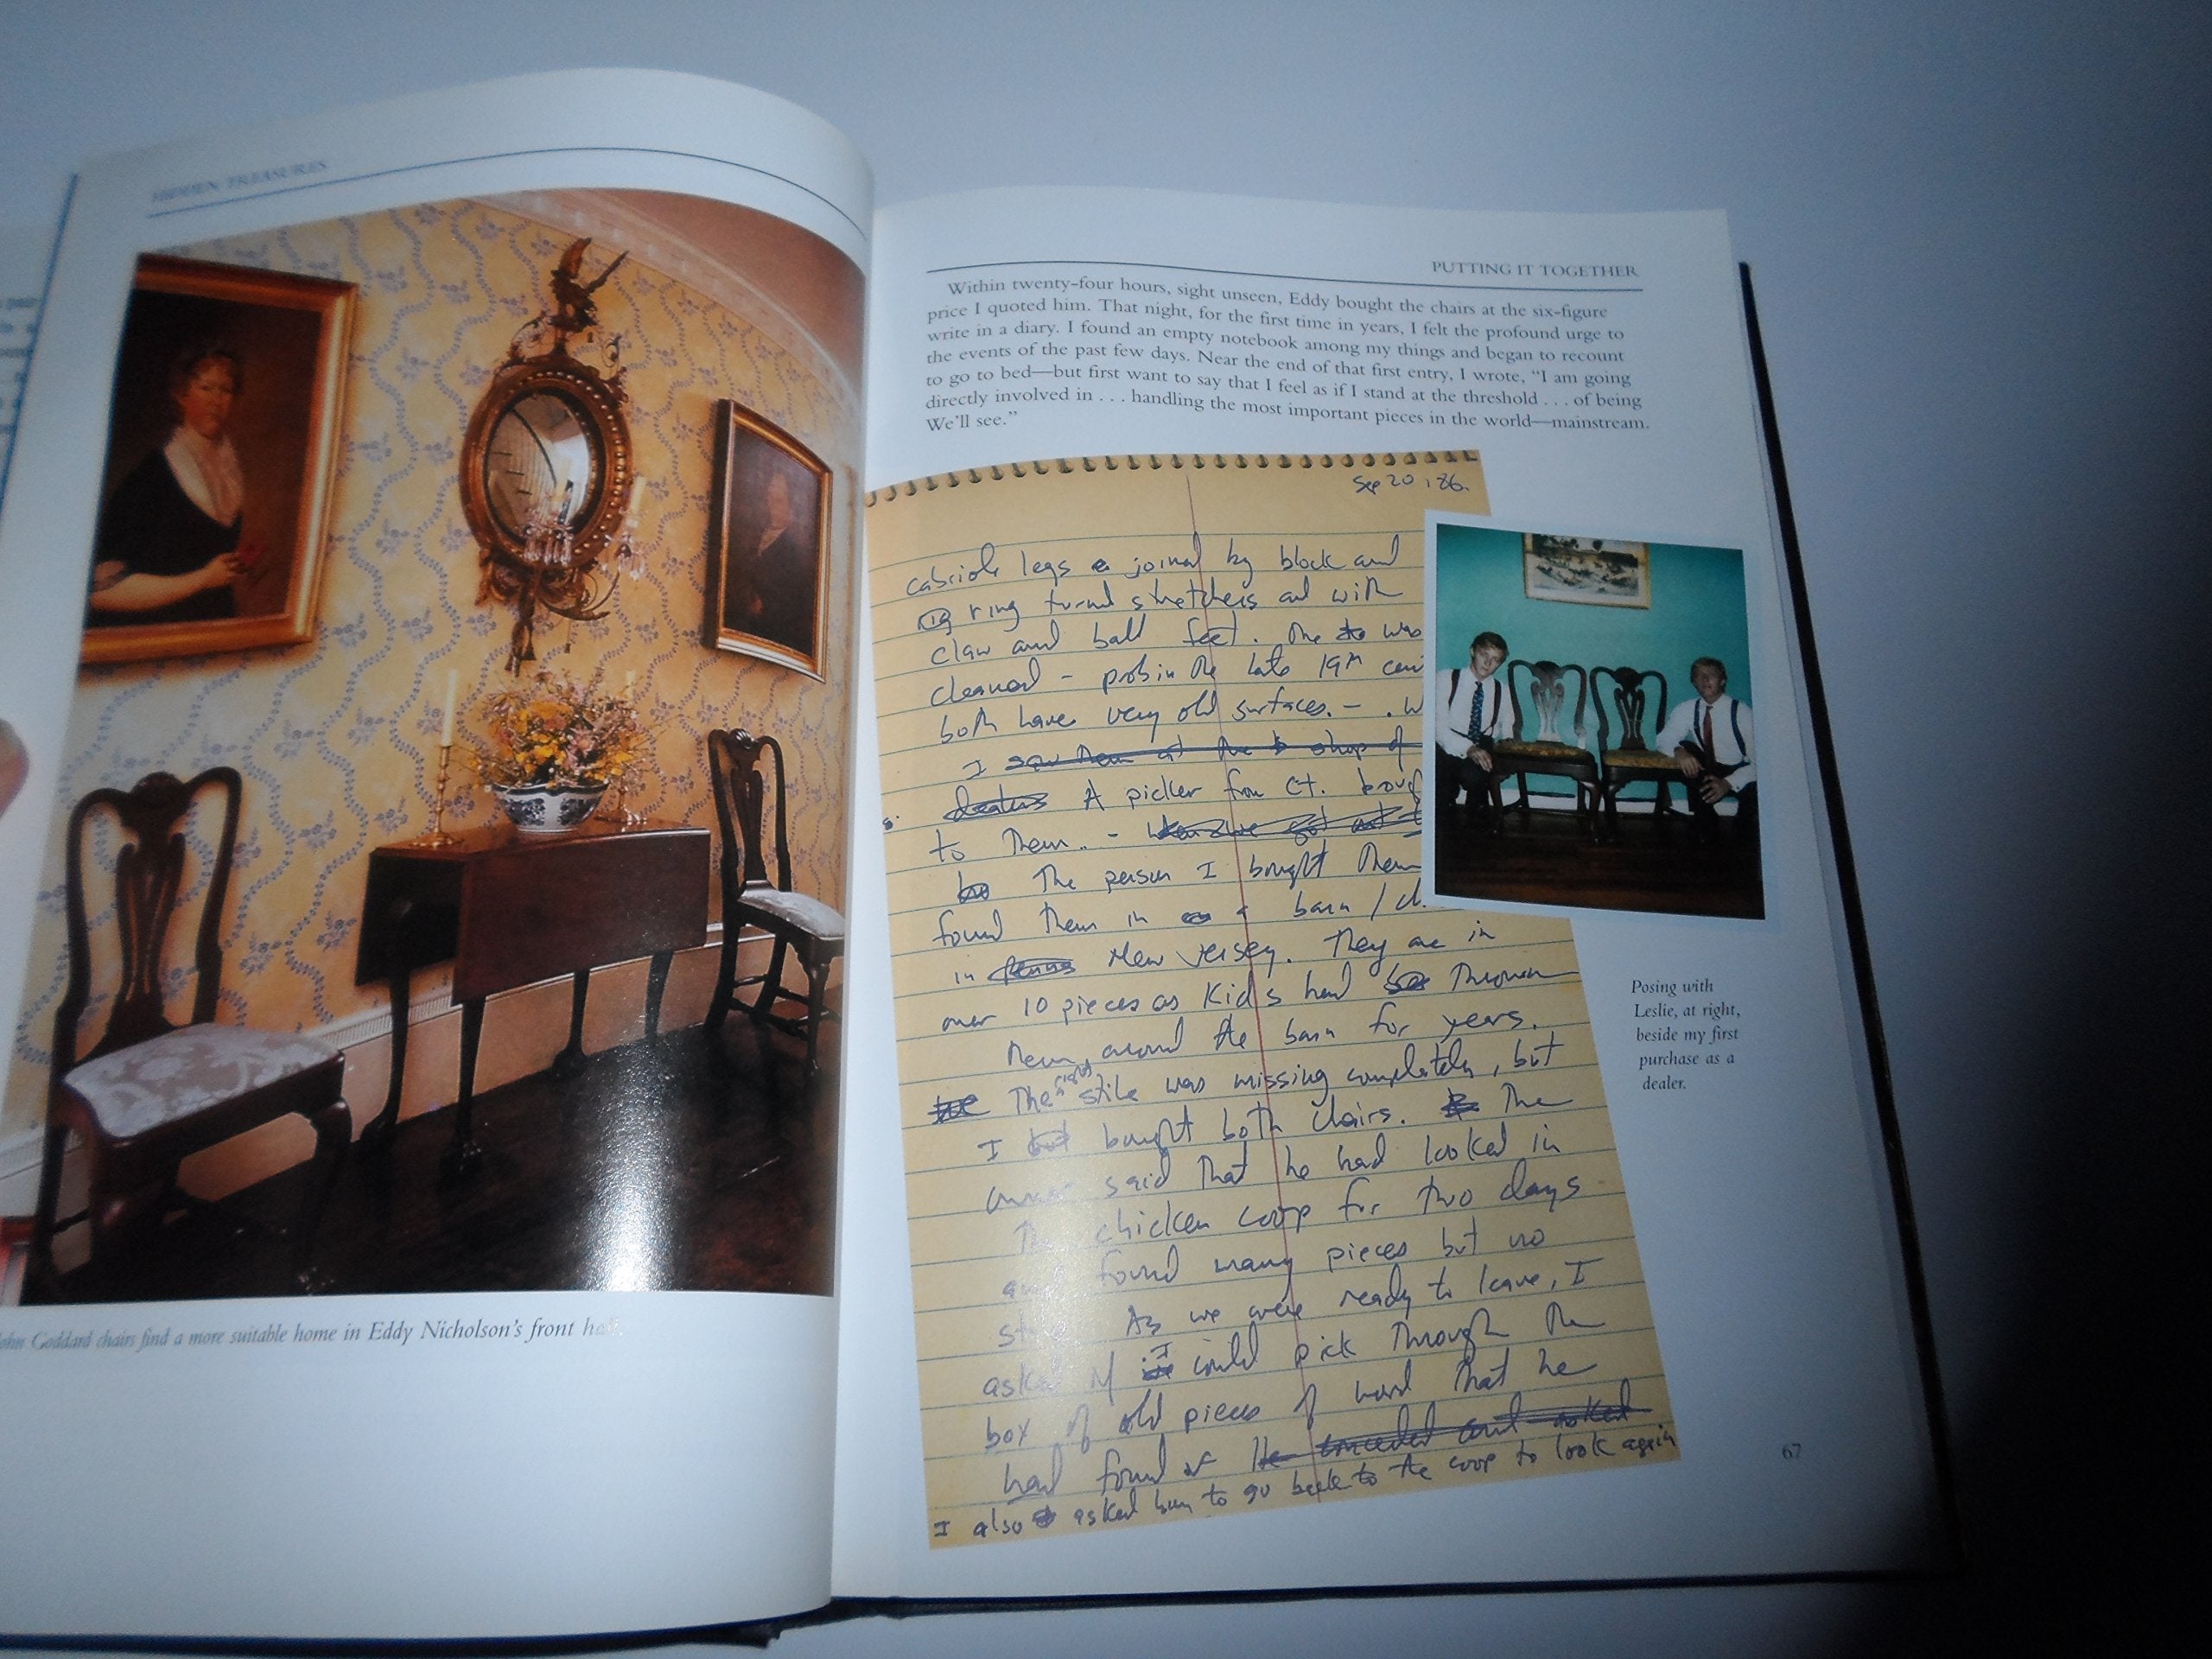 HIDDEN TREASURES
John Goddard chairs find a more suitable home in Eddy Nicholson's front hall.
PUTTING IT TOGETHER
Within twenty-four hours, sight unseen, Eddy bought the chairs at the six-figure
price I quoted him. That night, for the first time in years, I felt the profound urge to
write in a diary. I found an empty notebook among my things and began to recount
the events of the past few days. Near the end of that first entry, I wrote, "I am going
to go to bed—but first want to say that I feel as if I stand at the threshold . . . of being
directly involved in . . . handling the most important pieces in the world—mainstream.
We'll see."
Sep 20, 86.
cabriole legs joined by block and
ring turned stretchers and with
claw and ball feet. One was
cleaned - prob in the late 19th cen
both have very old surfaces. - . W
I saw them at the shop of
dealers A picker from Ct. boug
to them. -
The person I bought them
found them in a barn / ch
in New Jersey. They are in
over 10 pieces as kids had thrown
them around the barn for years.
The right stile was missing completely, but
I bought both chairs. The
owner said that he had looked in
chicken coop for two days
and found many pieces but no
As we were ready to leave, I
asked if I could pick through the
box of old pieces of wood that he
had found He conceded and asked
I also asked him to go back to the coop to look again
Posing with
Leslie, at right,
beside my first
purchase as a
dealer.
67